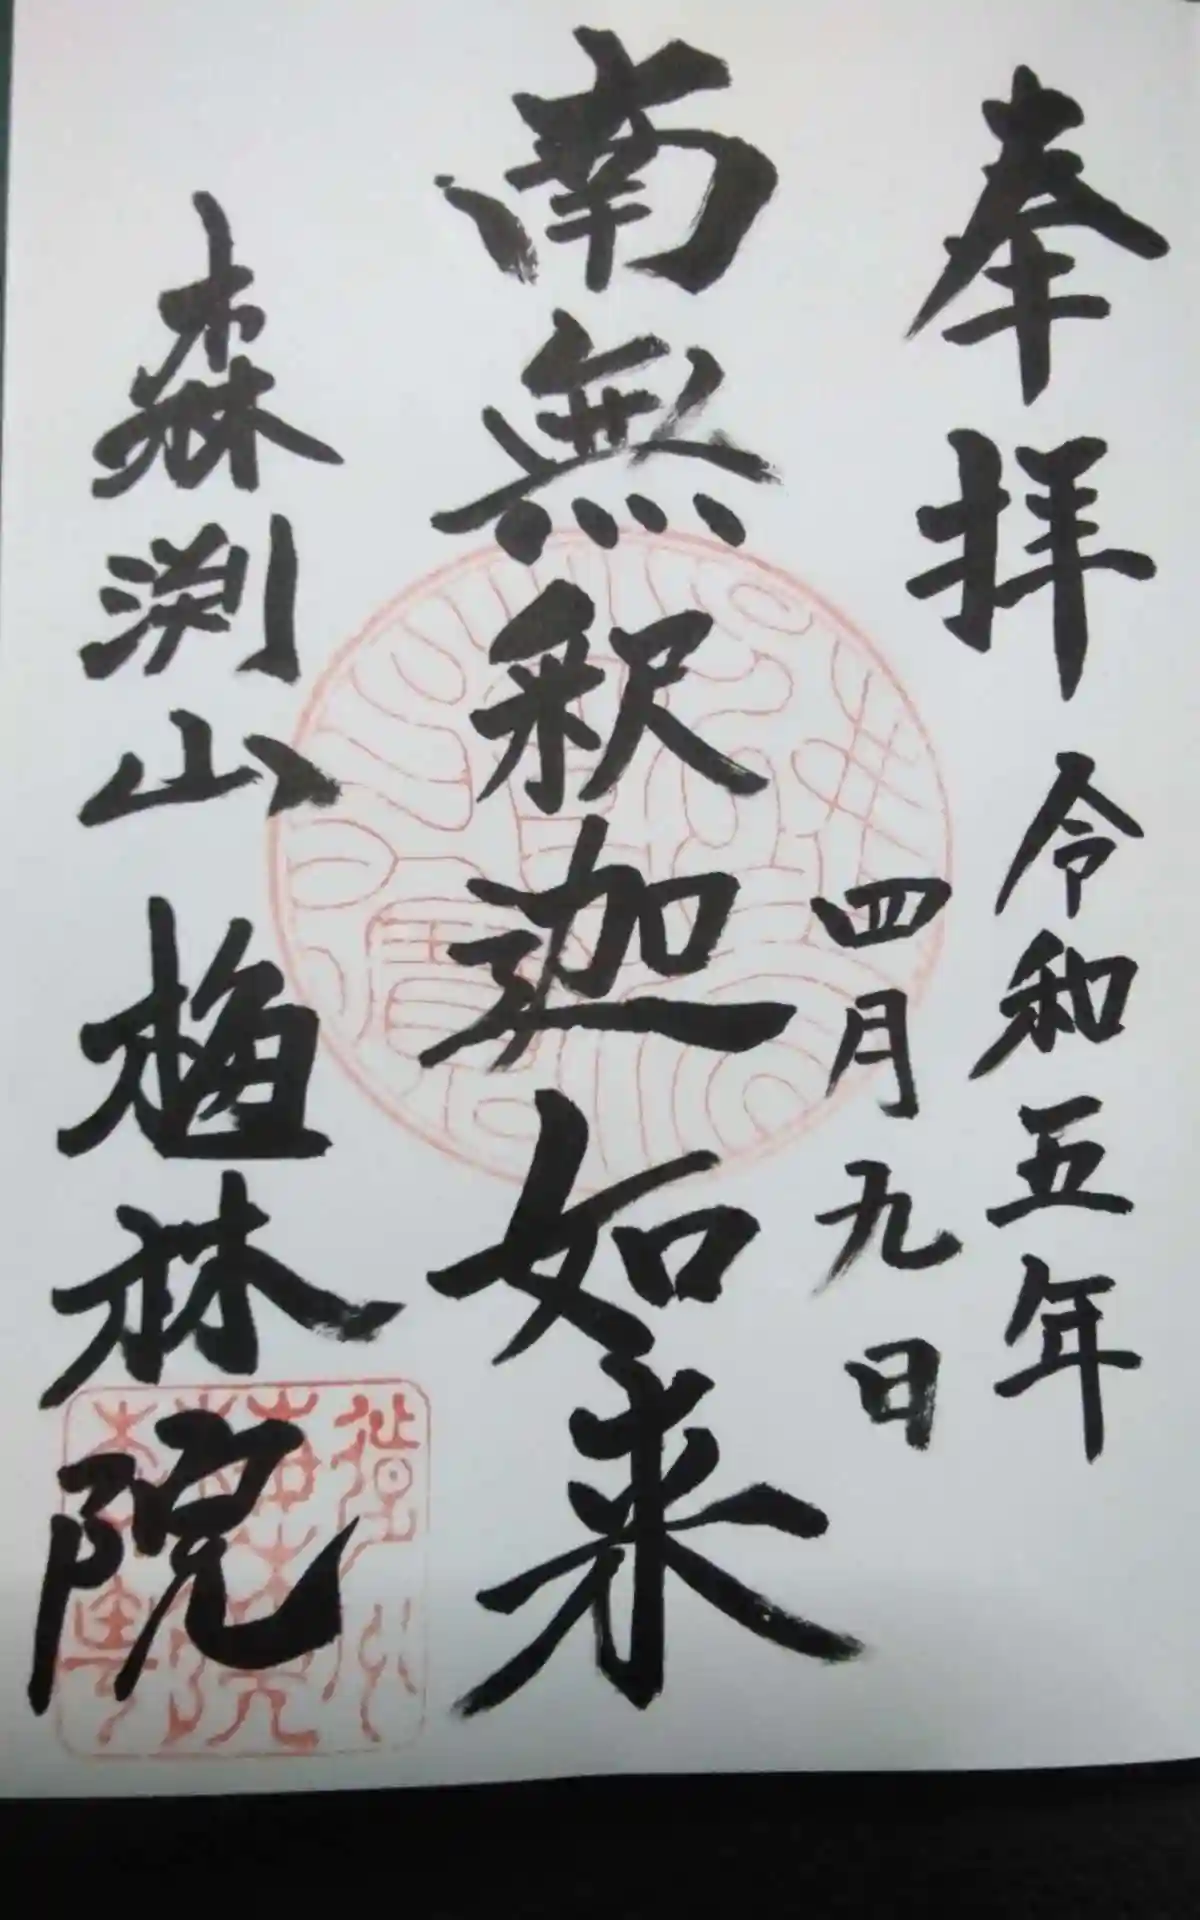 奉拝 令和五年
四月九日
南無釈迦如来
森渕山 梅林院